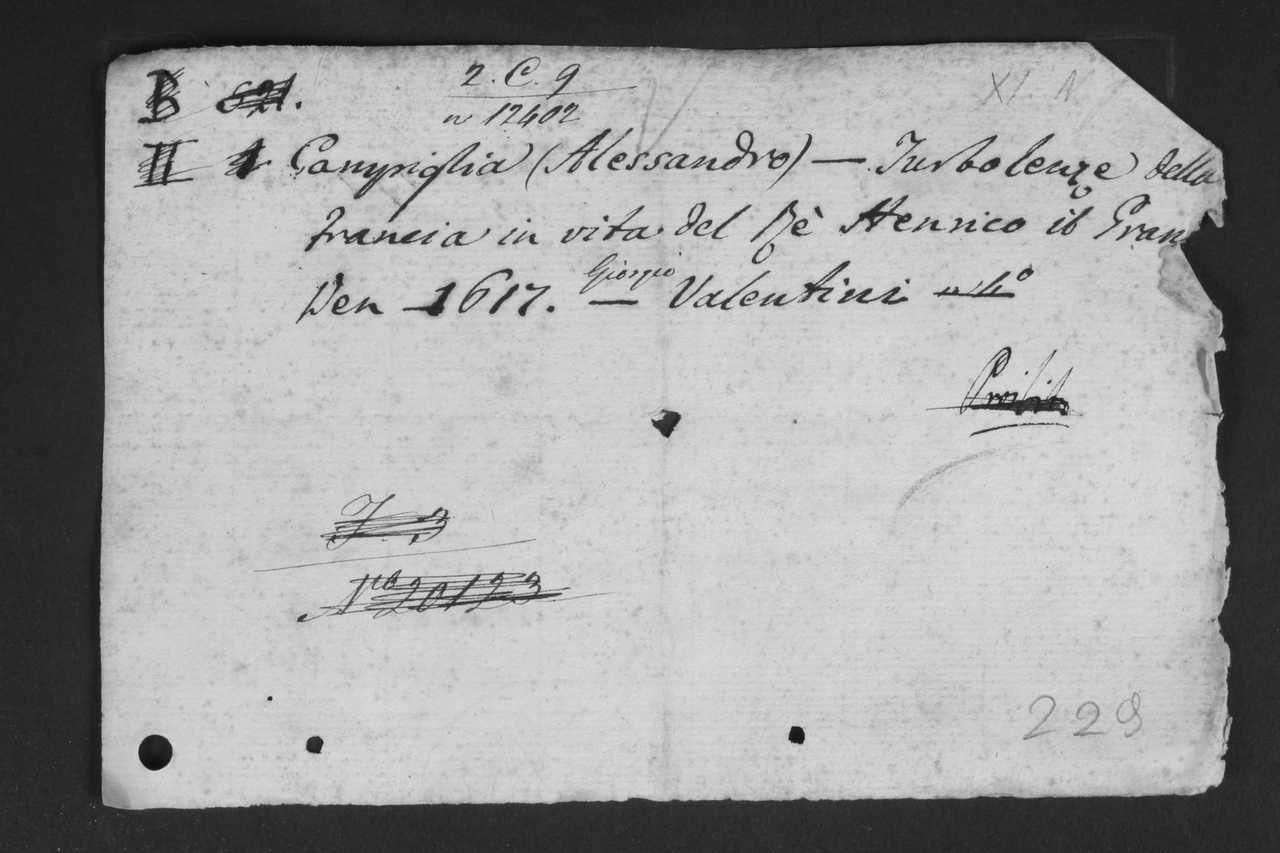 B 621.
2. C. 9
n 12402
XI. A
II 1 Campiglia (Alessandro) — Turbolenze della
francia in vita del Rè Henrico il Gran
Ven 1617. — Giorgio Valentini in 4°
Proibito
J. 3
N.ro 20123
229